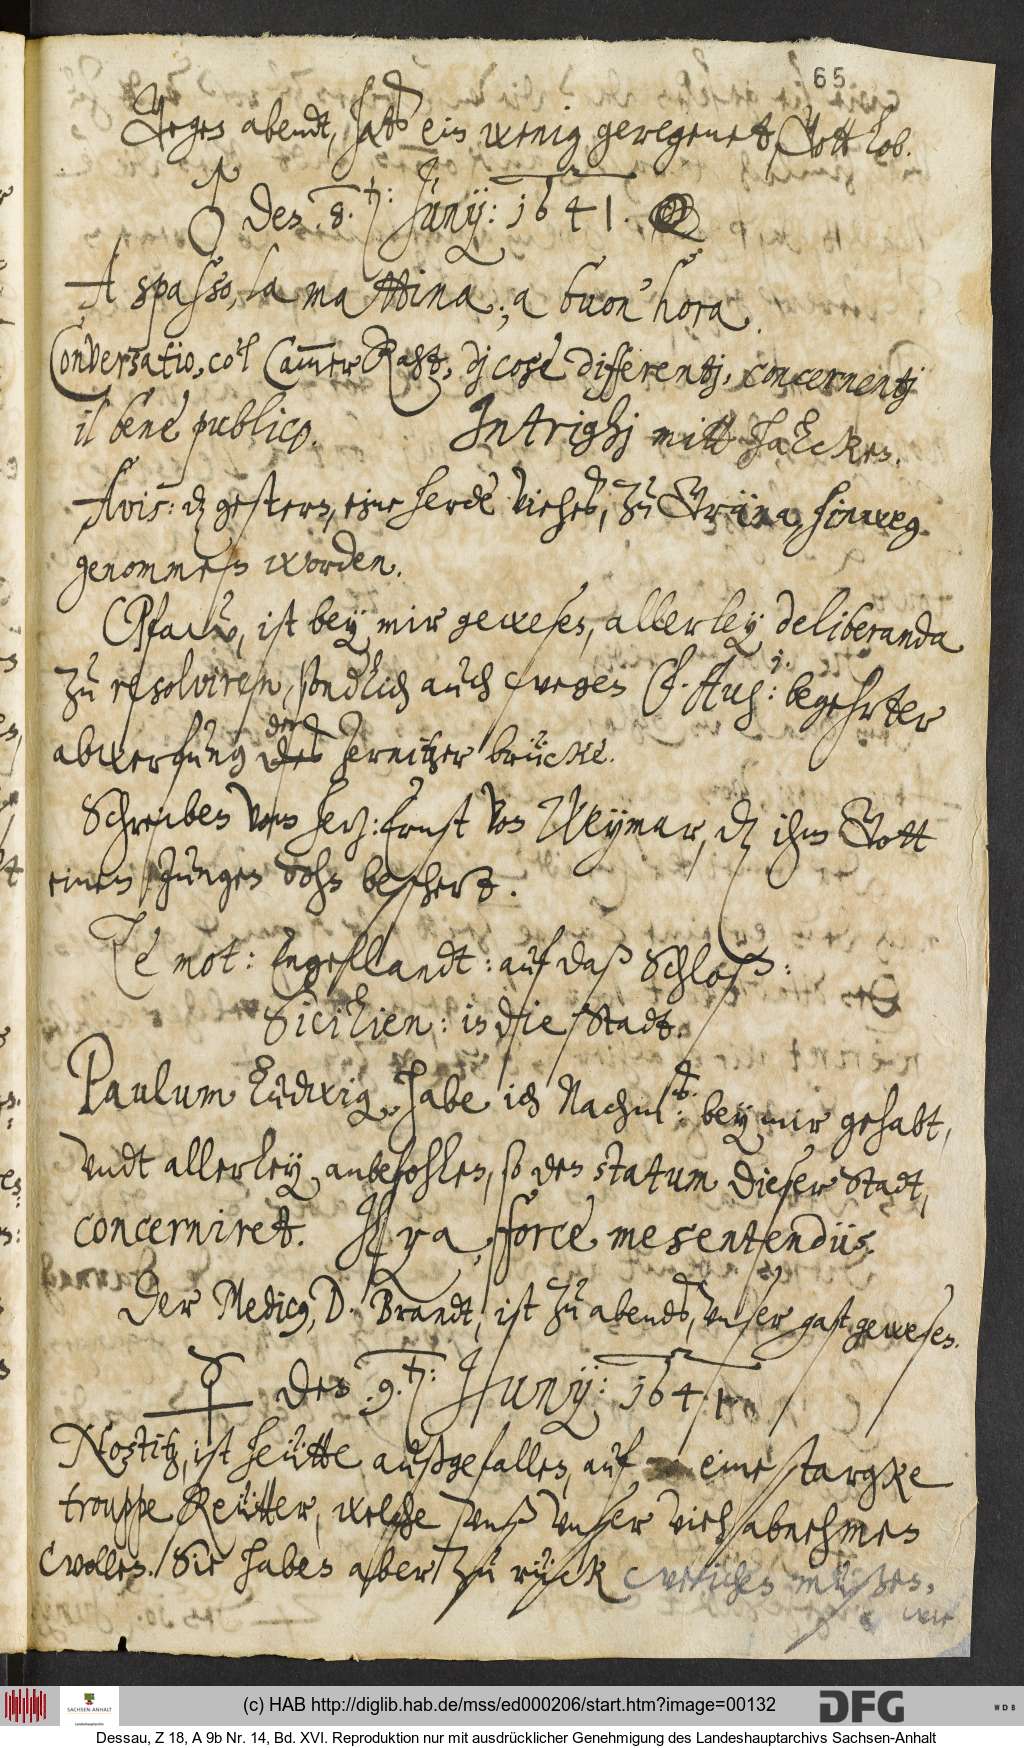 65
Gegen abendt, hats ein wenig geregenet, Gott lob.
♂ den 8. Junij: 1641.
A spasso, la mattina, a buon' hora.
Conversatio, co'l CammerRaht, dj cose differentj, concernentj
il bene publico. Intrighj mitt haEcken.
Avis: dz gestern, eine herde viehes, zu Gräna, hinweg
genommen worden.
Pfaw, ist bey mir gewesen, allerley deliberanda
zu resolviren, sondlich auch wegen F. Aug: begehrter
abwerfung der Jernitzer brücke.
Schreiben vom herz: Ernst von Weymar, dz ihm Gott
einen Jungen Sohn beschert.
Le mot: Engellandt: auf daß Schloß:
Sicilien: in die Stadt.
Paulum Ludwig, habe ich Nachm: bey mir gehabt,
vndt allerley anbefohlen, so den statum dieser Stadt,
concerniret. force mesentendüs.
Der Medicus, D. Brandt, ist zu abends, vnser gast gewesen.
☿ den 9. Junij: 1641
Nostitz, ist heütte außgefallen, auf eine stargke
trouppe Reütter, welche vnß vnser vieh abnehmen
wollen. Sie haben aber zu rück weichen müßen,
wie
(c) HAB http://diglib.hab.de/mss/ed000206/start.htm?image=00132
SACHSEN-ANHALT
Landeshauptarchiv
DFG
WDB
Dessau, Z 18, A 9b Nr. 14, Bd. XVI. Reproduktion nur mit ausdrücklicher Genehmigung des Landeshauptarchivs Sachsen-Anhalt